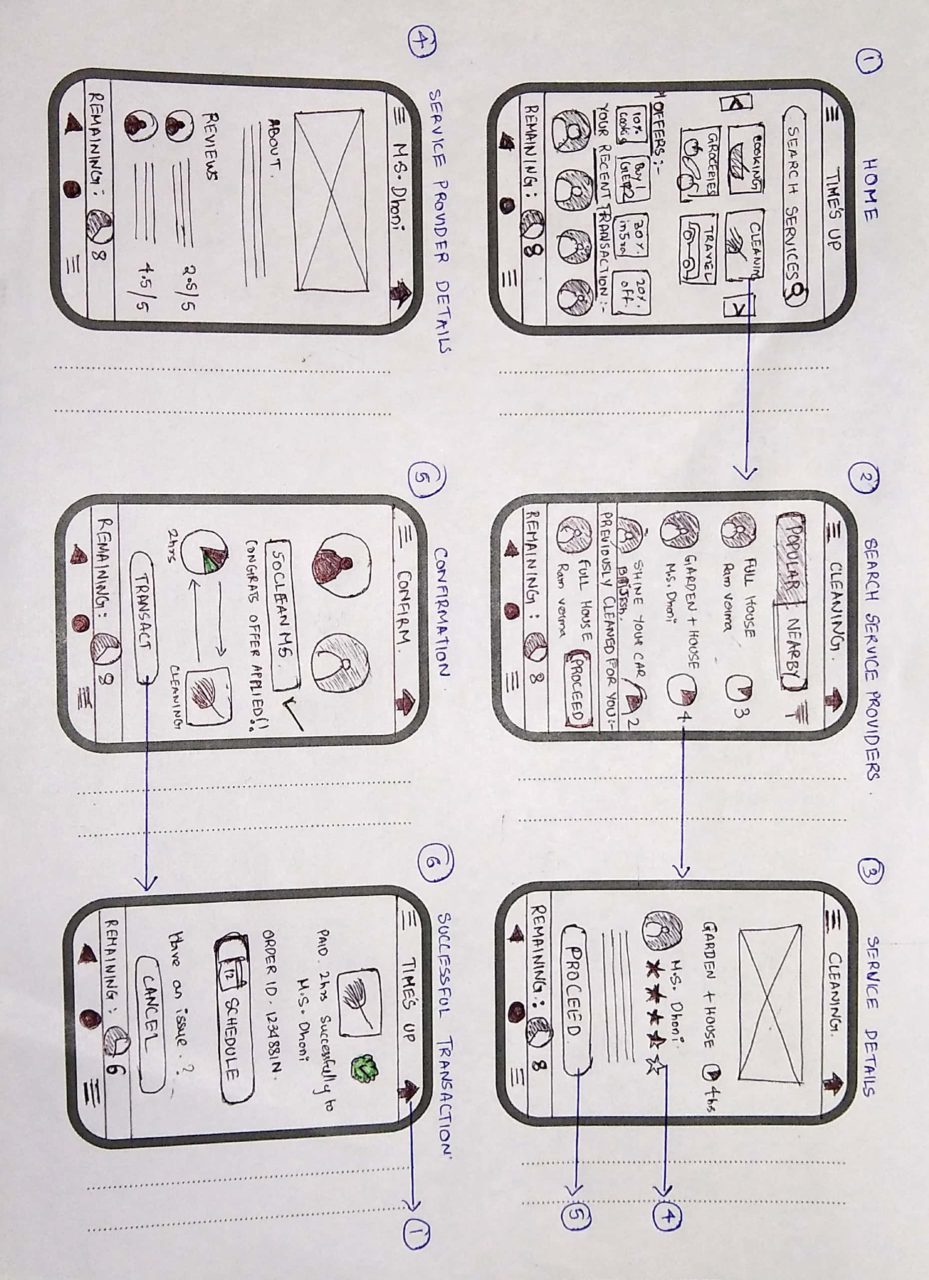 1 HOME
TIME'S UP
SEARCH SERVICES
COOKING CLEANIN
GROCERIES TRAVEL
OFFERS :-
10% BUY 1 30% 20%
GET 2 off
YOUR RECENT TRANSACTION :-
REMAINING : 8
2 SEARCH SERVICE PROVIDERS
CLEANING.
POPULAR NEARBY
FULL HOUSE
Ram Verma 3
GARDEN + HOUSE
M.S. Dhoni 4
SHINE YOUR CAR
BRIJESH. 2
PREVIOUSLY CLEANED FOR YOU:-
FULL HOUSE
Ram Verma PROCEED
REMAINING : 8
3 SERVICE DETAILS
CLEANING.
GARDEN + HOUSE 4hs
M.S. Dhoni
4
PROCEED
5
REMAINING : 8
4 SERVICE PROVIDER DETAILS
M.S. Dhoni
ABOUT.
REVIEWS
2.5/5
4.5/5
REMAINING : 8
5 CONFIRMATION
CONFIRM.
50CLEANMS.
CONGRATS OFFER APPLIED!!
2hrs CLEANING
TRANSACT
REMAINING: 8
6 SUCCESSFUL TRANSACTION
TIME'S UP
1
PAID. 2hrs Successfully to
M.S. Dhoni
ORDER ID. 1234881N.
12 SCHEDULE
Have an issue.?
CANCEL
REMAINING : 6